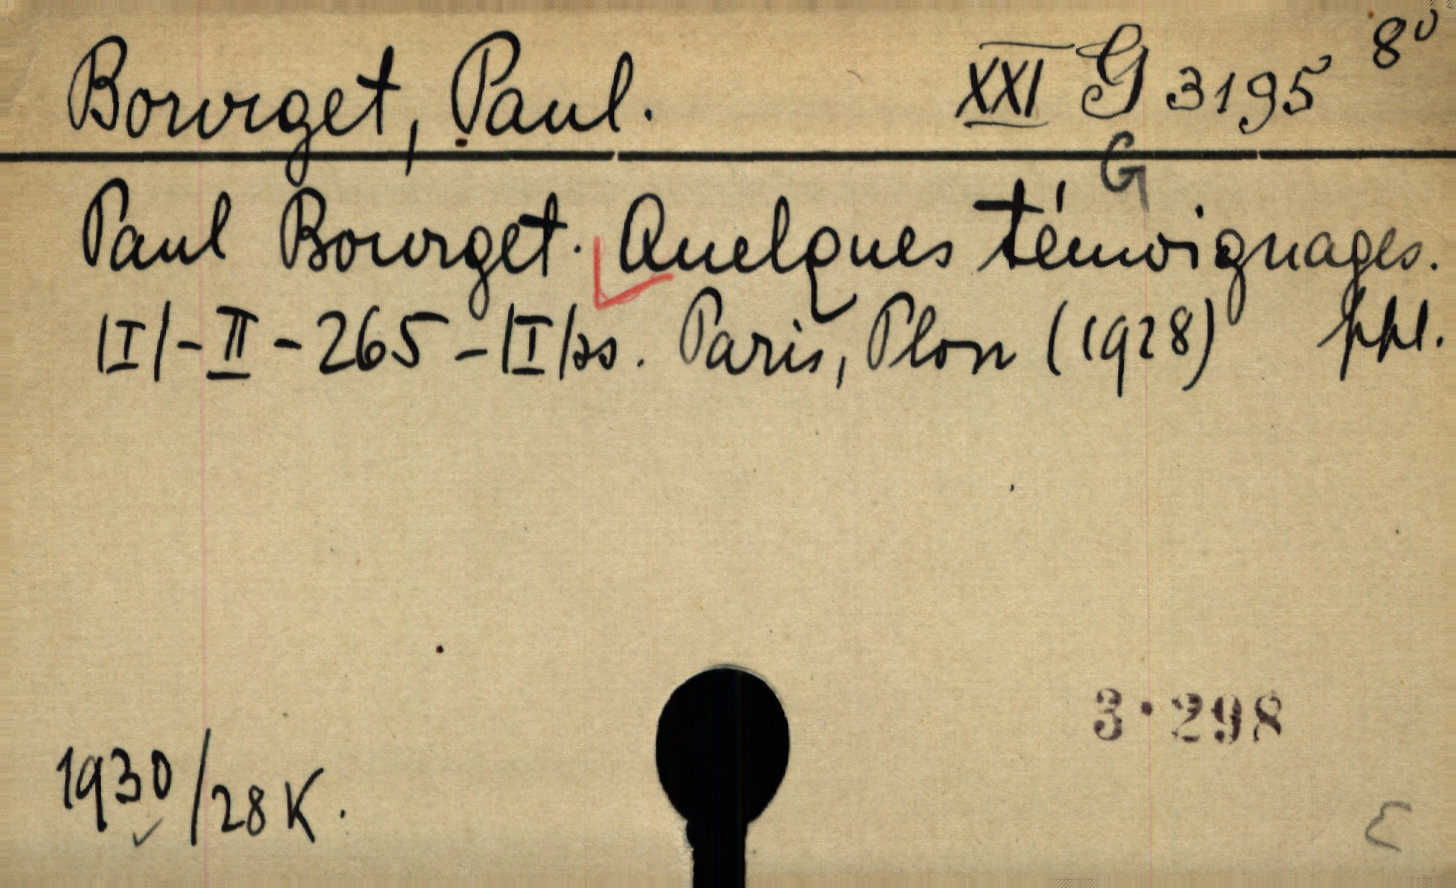 Bourget, Paul. XXI G 3195 8º
G
Paul Bourget. Quelques témoignages.
|I|-II-265-|I|ss. Paris, Plon (1928) ppl.
3·298
1930/28 K.